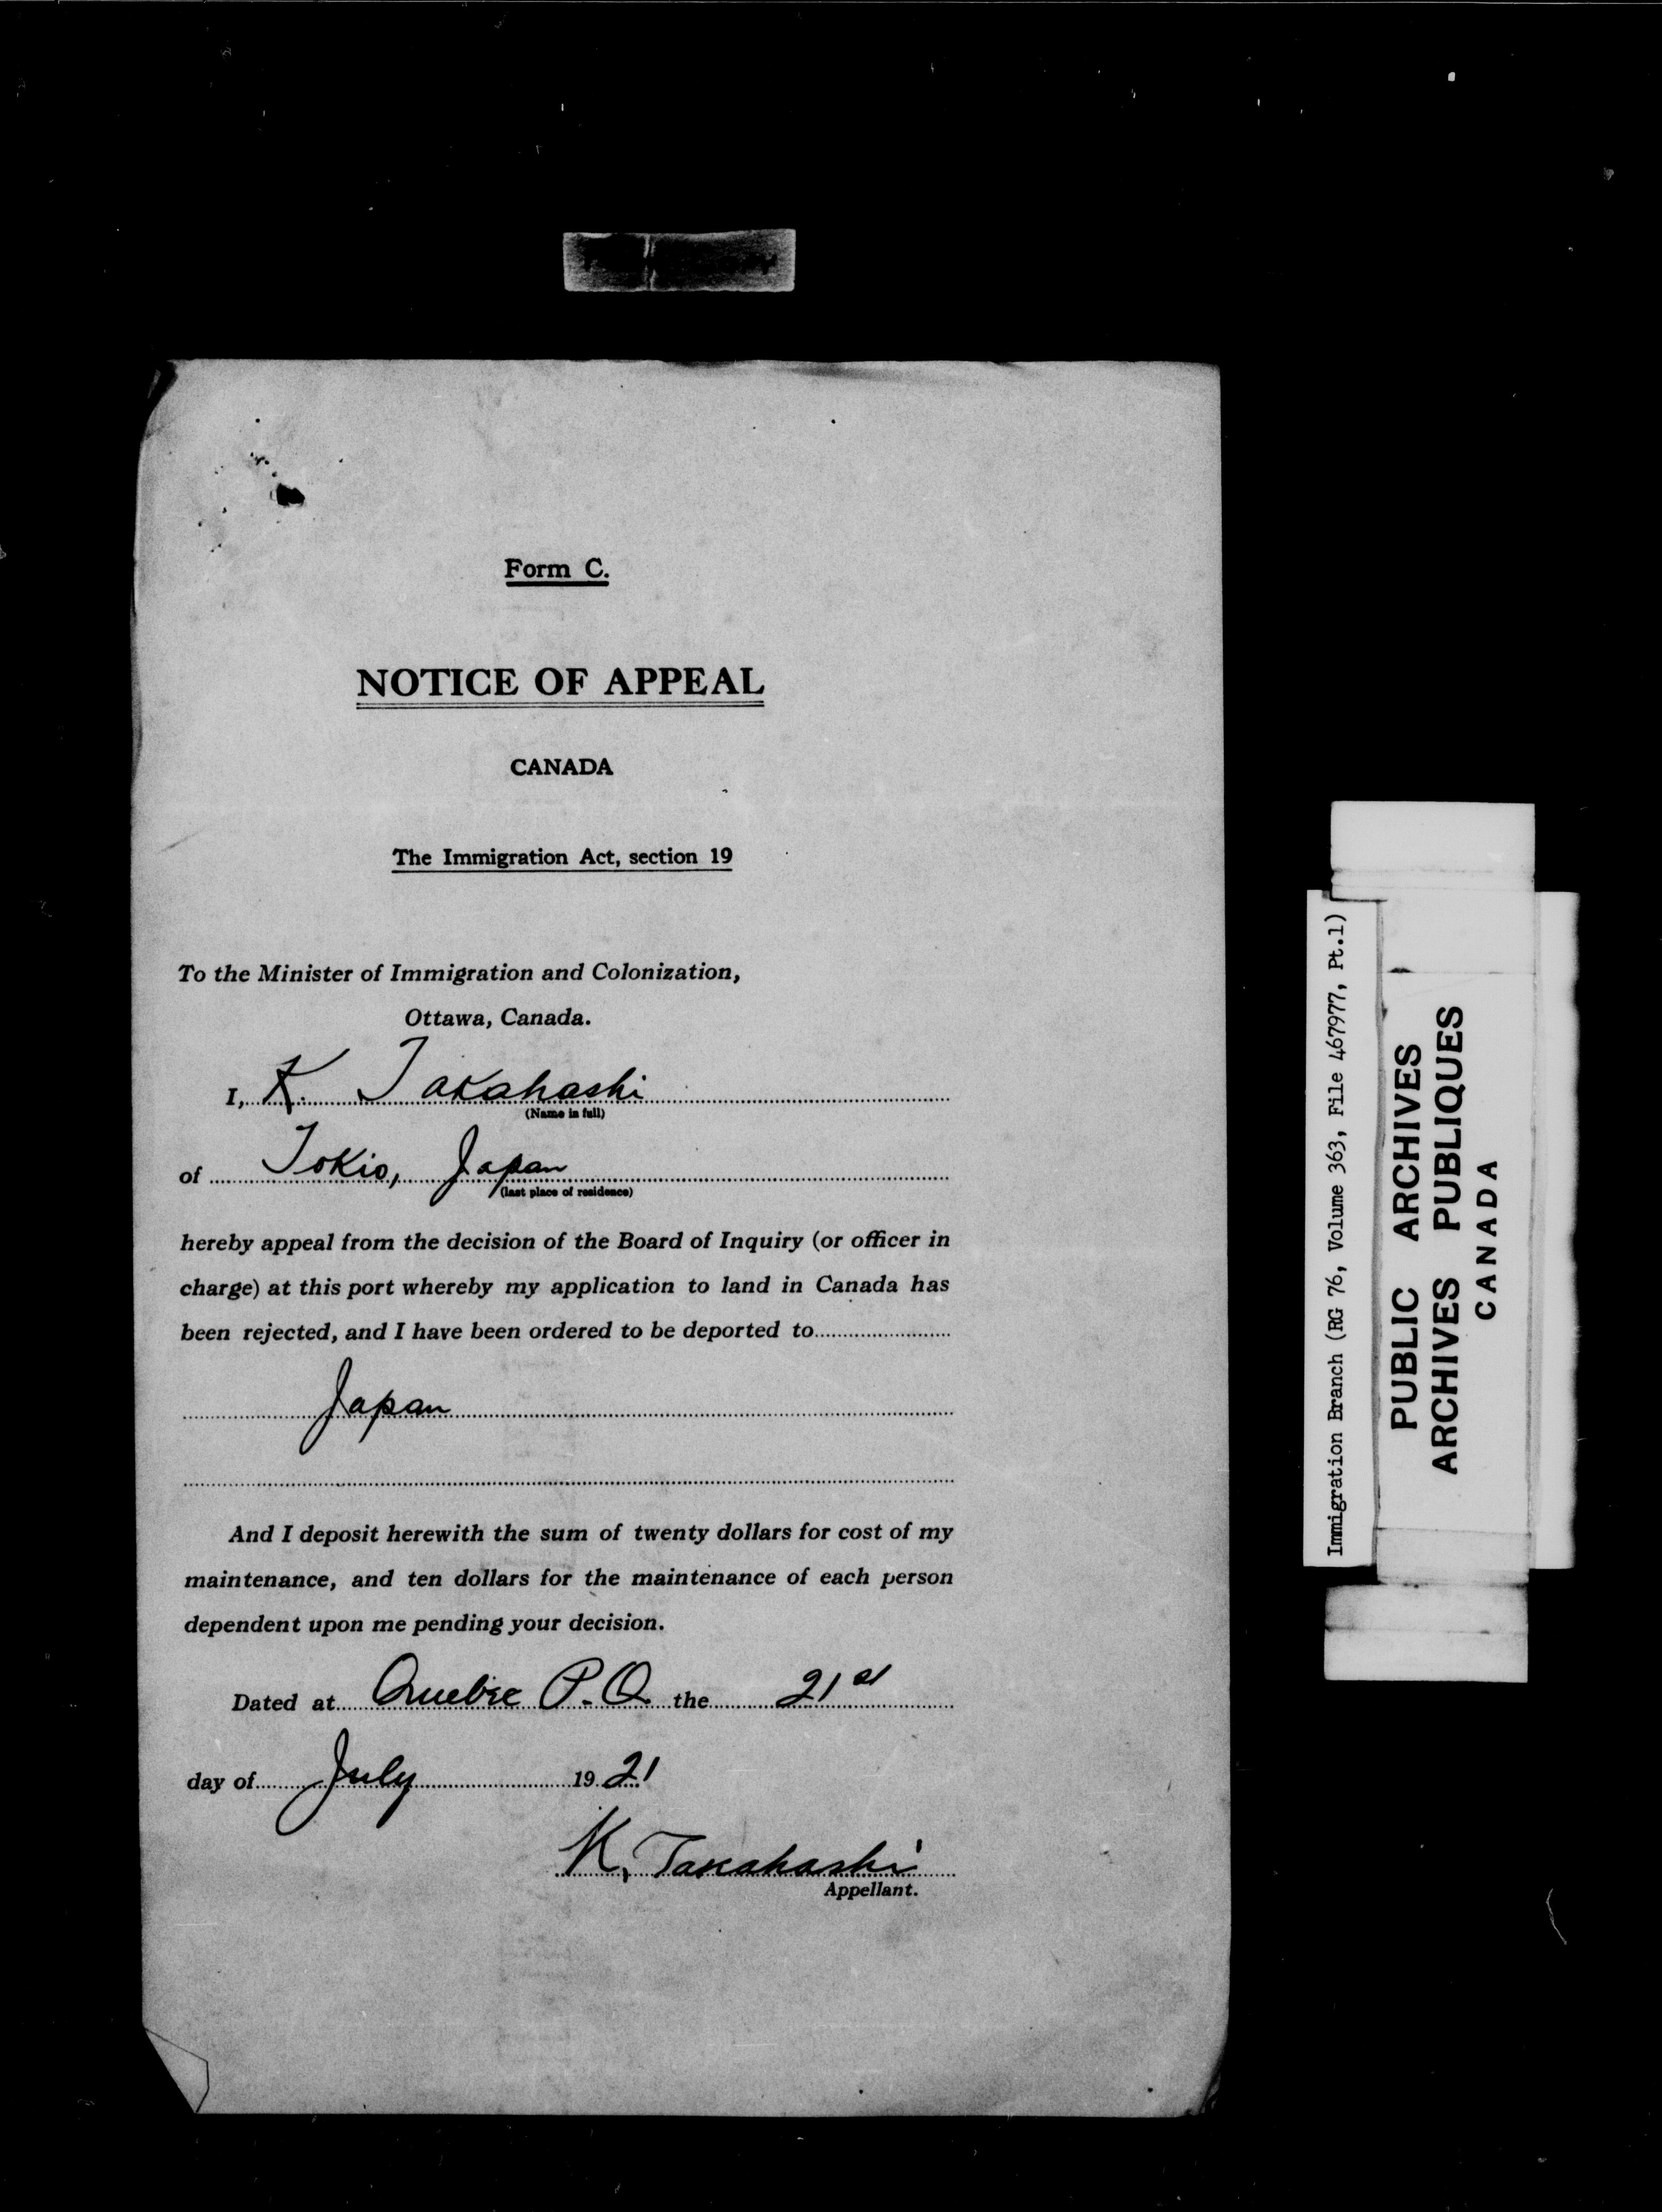 Form C.
NOTICE OF APPEAL
CANADA
The Immigration Act, section 19
To the Minister of Immigration and Colonization,
Ottawa, Canada.
I, K. Takahashi
(Name in full)
of Tokio, Japan
(last place of residence)
hereby appeal from the decision of the Board of Inquiry (or officer in
charge) at this port whereby my application to land in Canada has
been rejected, and I have been ordered to be deported to
Japan
And I deposit herewith the sum of twenty dollars for cost of my
maintenance, and ten dollars for the maintenance of each person
dependent upon me pending your decision.
Dated at Quebec P.Q. the 21st
day of July 1921
K. Takahashi
Appellant.
Immigration Branch (RG 76, Volume 363, File 467977, Pt.1)
PUBLIC ARCHIVES
ARCHIVES PUBLIQUES
CANADA